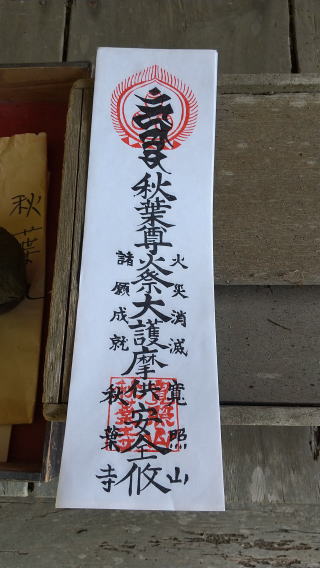 秋葉尊火祭大護摩供安全攸
火災消滅
諸願成就
寛照山
秋葉寺
秋葉